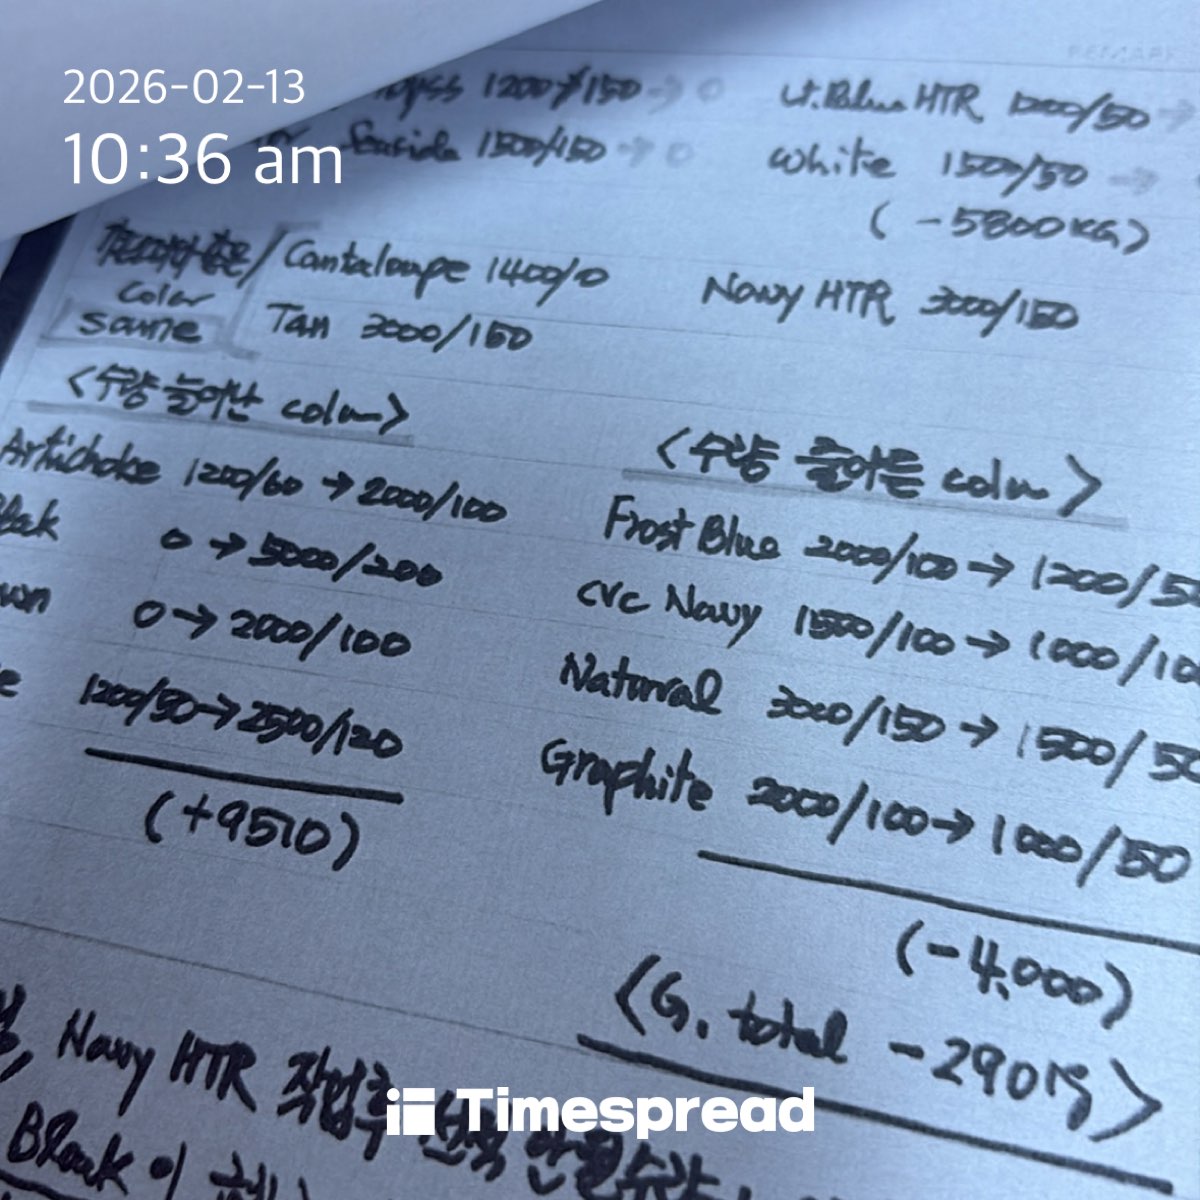 2026-02-13
10:36 am
1200/150 → 0
Seaside 1500/150 → 0
Lt.Blue HTR 1200/50 →
White 1500/50 →
(-5800KG)
color
same
Cantaloupe 1400/0
Tan 3000/150
Navy HTR 3000/150
<수량 늘어난 color>
Artichoke 1200/60 → 2000/100
Blak 0 → 5000/200
0 → 2000/100
1200/50 → 2500/120
(+9510)
<수량 줄어든 color>
Frost Blue 2000/100 → 1200/50
CVC Navy 1500/100 → 1000/100
Natural 3000/150 → 1500/50
Graphite 2000/100 → 1000/50
(-4,000)
<G. total -290kg>
Navy HTR 작업후
Black 이
Timespread